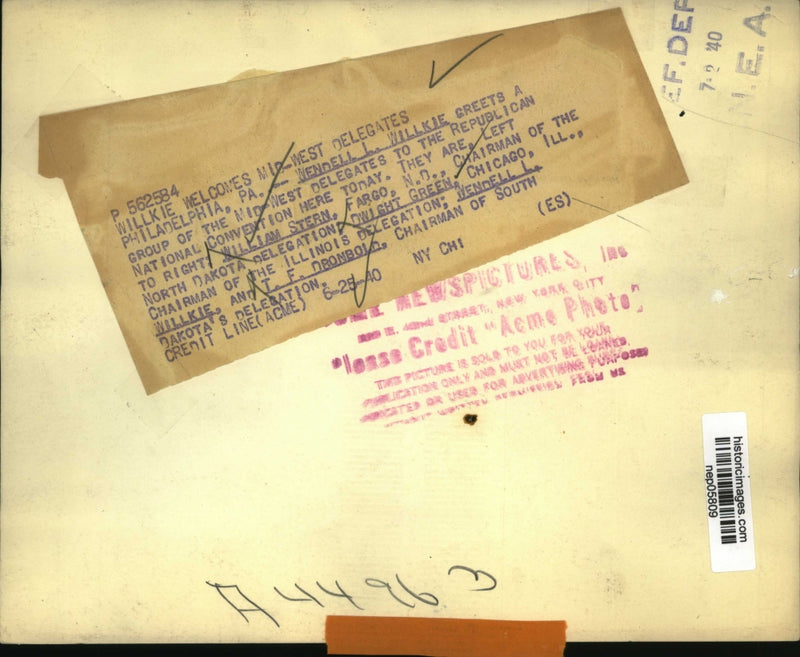 P 562584
WILLKIE WELCOMES MID-WEST DELEGATES
PHILADELPHIA, PA. -- WENDELL L. WILLKIE GREETS A
GROUP OF THE MID-WEST DELEGATES TO THE REPUBLICAN
NATIONAL CONVENTION HERE TODAY. THEY ARE, LEFT
TO RIGHT: WILLIAM STERN, FARGO, N.D., CHAIRMAN OF THE
NORTH DAKOTA DELEGATION; DWIGHT GREEN, CHICAGO, ILL.,
CHAIRMAN OF THE ILLINOIS DELEGATION; WENDELL L.
WILLKIE, AND T. F. DRONBOLE, CHAIRMAN OF SOUTH
DAKOTA'S DELEGATION. (ES)
CREDIT LINE(ACME) 6-25-40 NY CHI
EF. DEP
7-2 '40
N. E. A.
NEWSPICTURES, Inc
STREET, NEW YORK CITY
Please Credit "Acme Photo"
THIS PICTURE IS SOLD TO YOU FOR YOUR
PUBLICATION ONLY AND MUST NOT BE LOANED,
OR USED FOR ADVERTISING PURPOSES
WRITTEN PERMISSION FROM US
historicimages.com
nep05809
A 4496 3